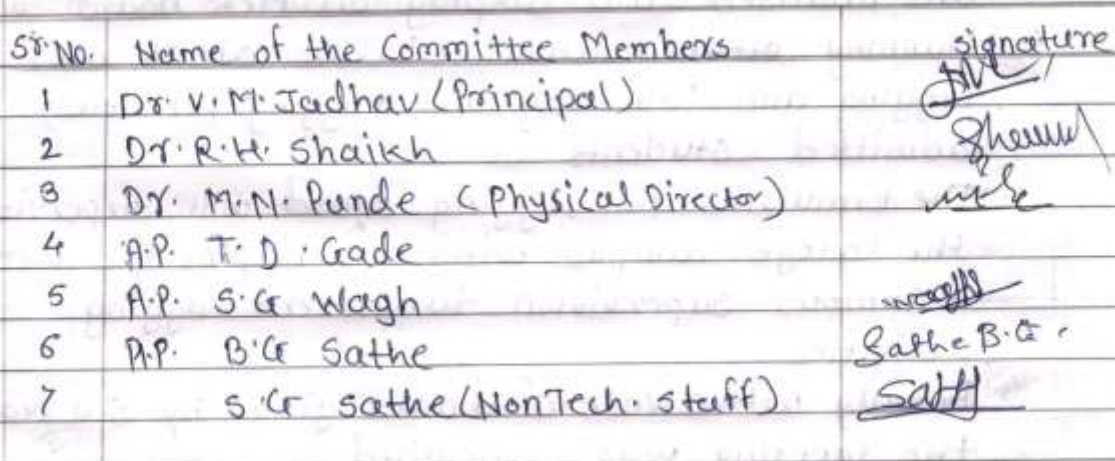 Sr. No. Name of the Committee Members signature
1 Dr. V. M. Jadhav (Principal)
2 Dr. R. H. Shaikh
3 Dr. M. N. Punde (Physical Director)
4 A.P. T. D. Gade
5 A.P. S. G Wagh
6 A.P. B. G Sathe Sathe B. G.
7 S. G Sathe (Non Tech. staff)